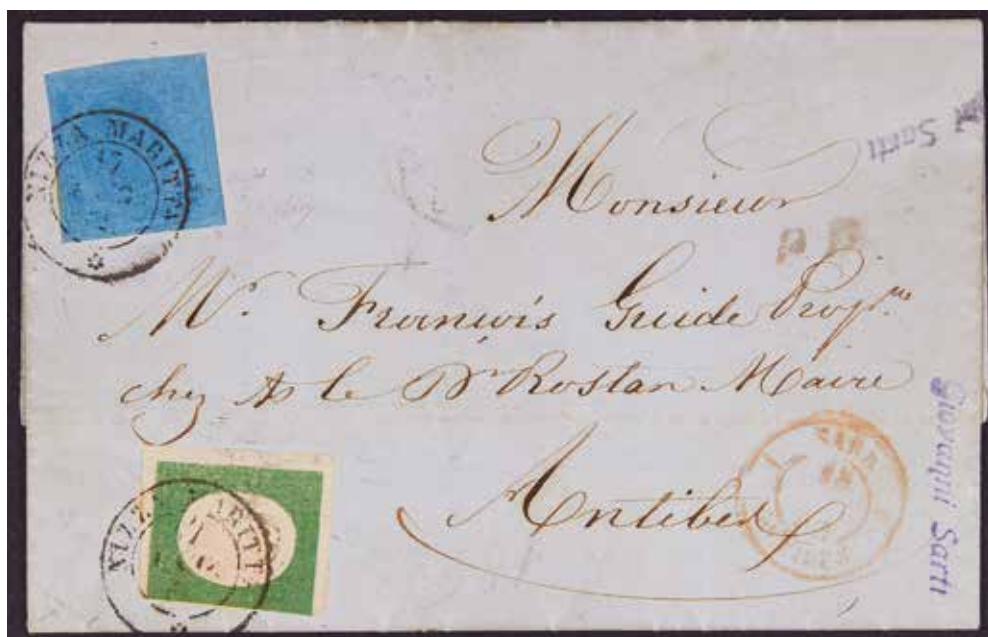 NIZZA MARITTA
Sarti
Monsieur
P. P.
Mr. François Guide Prop.re
chez M le Dr Rostan Maire
Antibes
NIZZA MARITTA
SARD
Giovanni Sarti